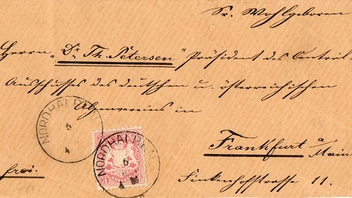 Sr. Wohlgeboren
Herrn „Dr. Th. Petersen" Präsident des Central-
Ausschusses des deutschen u. österreichischen
Alpenvereins in
Frankfurt a/Main
frei. Finkenhofstrasse 11.
NORDHALBEN
6
4
NORDHALBEN
6
4